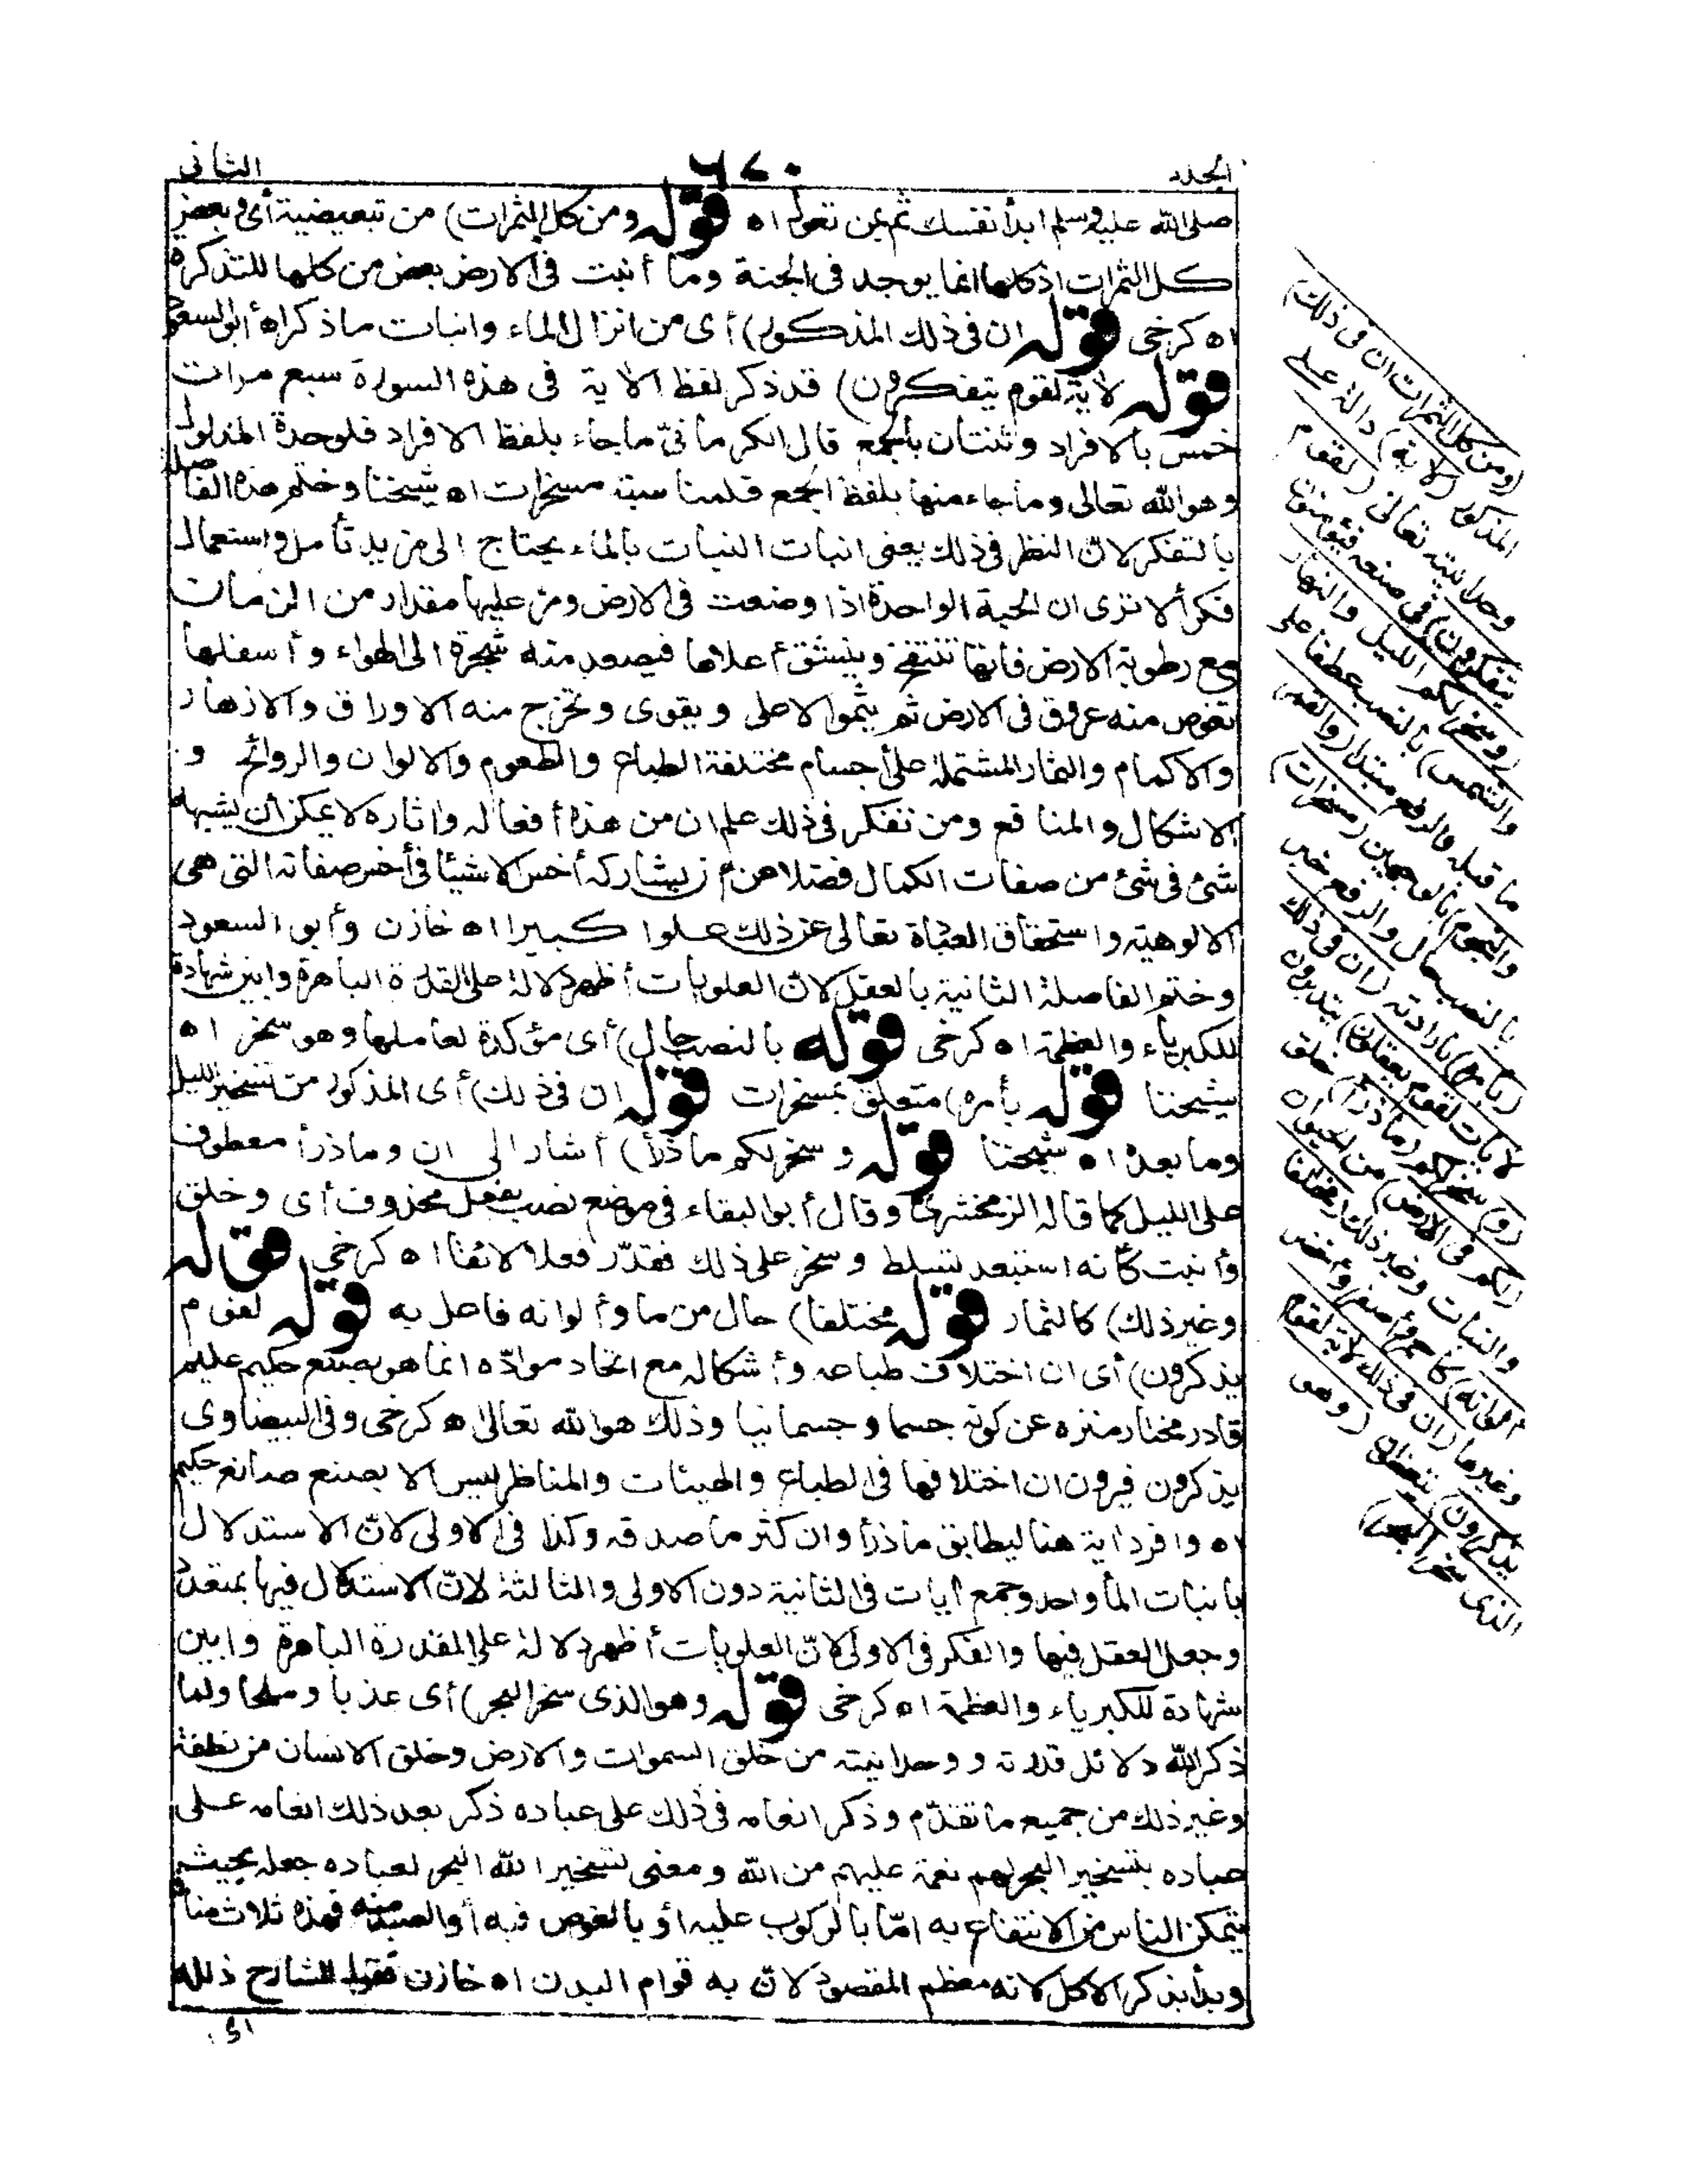 المجلد
٦٧٠
الثانى
صلى الله عليه وسلم ابدأ بنفسك ثم بمن تعول اه قوله ومن كل الثمرات) من تبعيضية أى وبعض
كل الثمرات اذ كلها انما يوجد فى الجنة وما أنبت فى الارض بعض من كلها للتذكرة
اه كرخى قوله ان فى ذلك المذكور) أى من انزال الماء وانبات ما ذكر اه أبو السعود
قوله لآية لقوم يتفكرون) قد ذكر لفظ الآية فى هذه السورة سبع مرات
خمس بالافراد وثنتان بالجمع قال الكرمانىّ ما جاء بلفظ الافراد فلوحدة المدلول
وهو الله تعالى وما جاء منها بلفظ الجمع فلمناسبة مسخرات اه شيخنا وختم هذه الفاصلة
بالتفكر لانّ النظر فى ذلك يعنى انبات النبات بالماء يحتاج الى مزيد تأمل واستعمال
فكر ألا ترى ان الحبة الواحدة اذا وضعت فى الارض ومرّ عليها مقدار من الزمان
مع رطوبة الارض فانها تنتفخ وينشق أعلاها فيصعد منه شجرة الى الهواء وأسفلها
تغوص منه عروق فى الارض ثم ينموا الاعلى ويقوى وتخرج منه الاوراق والازهار
والاكمام والثمار المشتملة على أجسام مختلفة الطباع والطعوم والالوان والروائح و
الاشكال والمنافع ومن تفكر فى ذلك علم ان من هذه أفعاله واثاره لا يمكن أن يشبهه
شئ فى شئ من صفات الكمال فضلا عن أن يشاركه أخس الاشيا فى أخص صفاته التى هى
الالوهية واستحقاق العبادة تعالى عن ذلك علوا كبيرا اه خازن وأبو السعود
وختم الفاصلة الثانية بالعقل لانّ العلويات أظهر دلالة على القدرة الباهرة وابين شهادة
للكبرياء والعظمة اه كرخى قوله بالنصب حال) أى مؤكدة لعاملها وهو سخر اه
شيخنا قوله بأمره) متعلق بمسخرات قوله ان فى ذلك) أى المذكور من تسخير الليل
وما بعده اه شيخنا قوله وسخر لكم ما ذرأ) أشار الى ان وما ذرأ معطوف
على الليل كما قاله الزمخشرىّ وقال أبو البقاء فى موضع نصب بفعل محذوف أى وخلق
وأنبت كأنه استبعد تسلط وسخر على ذلك فقدّر فعلا لائقا اه كرخى قوله
وغير ذلك) كالثمار قوله مختلفا) حال من ما وألوانه فاعل به قوله لقوم
يذكرون) أى ان اختلاف طباعه وأشكاله مع اتحاد موادّه انما هو بصنع حكيم عليم
قادر مختار منزه عن كونه جسما وجسمانيا وذلك هو الله تعالى اه كرخى وفى البيضاوى
يذكرون فيرون ان اختلافها فى الطباع والهيئات والمناظر ليس الا بصنع صانع حكيم
اه وافرد اية هنا ليطابق ما ذرأ وان كثر ما صدقه وكذا فى الاولى لانّ الاستدلال
بانبات الماء واحد وجمع آيات فى الثانية دون الاولى والثالثة لانّ الاستدلال فيها بمتعدد
وجعل العقل فيها والفكر فى الاولى لانّ العلويات أظهر دلالة على القدرة الباهرة وابين
شهادة للكبرياء والعظمة اه كرخى قوله وهو الذى سخر البحر) أى عذبا وملحا ولما
ذكر الله دلائل قدرته ووحدانيته من خلق السموات والارض وخلق الانسان من نطفة
وغير ذلك من جميع ما تقدّم وذكر انعامه فى ذلك على عباده ذكر بعد ذلك انعامه على
عباده بتسخير البحر لهم نعمة عليهم من الله ومعنى تسخير الله البحر لعباده جعله بحيث
يتمكن الناس من الانتفاع به امّا بالركوب عليه أو بالغوص فيه أو الصيد منه فهذه ثلاث منافع
وبدأ بذكر الاكل لانه معظم المقصود لانّ به قوام البدن اه خازن الشارح ذلك
(ومن كل الثمرات ان فى ذلك)
المذكور (لآية) دالة على
وحدانيته تعالى (لقوم
يتفكرون) فى صنعه فيؤمنون
(وسخر لكم الليل والنهار
والشمس) بالنصب عطفا على
ما قبله والرفع مبتدا (والقمر
والنجوم) بالوجهين (مسخرات)
بالنصب حال والرفع خبر
(بأمره) بارادته (ان فى ذلك
لآيات لقوم يعقلون) يتدبرون
(و) سخر لكم (ما ذرأ) خلق
لكم فى الارض) من الحيوان
والنبات وغير ذلك (مختلفا
ألوانه) كأحمر وأصفر وأخضر
وغيرها (ان فى ذلك لآية لقوم
يذكرون) يتعظون (وهو
الذى سخر البحر)